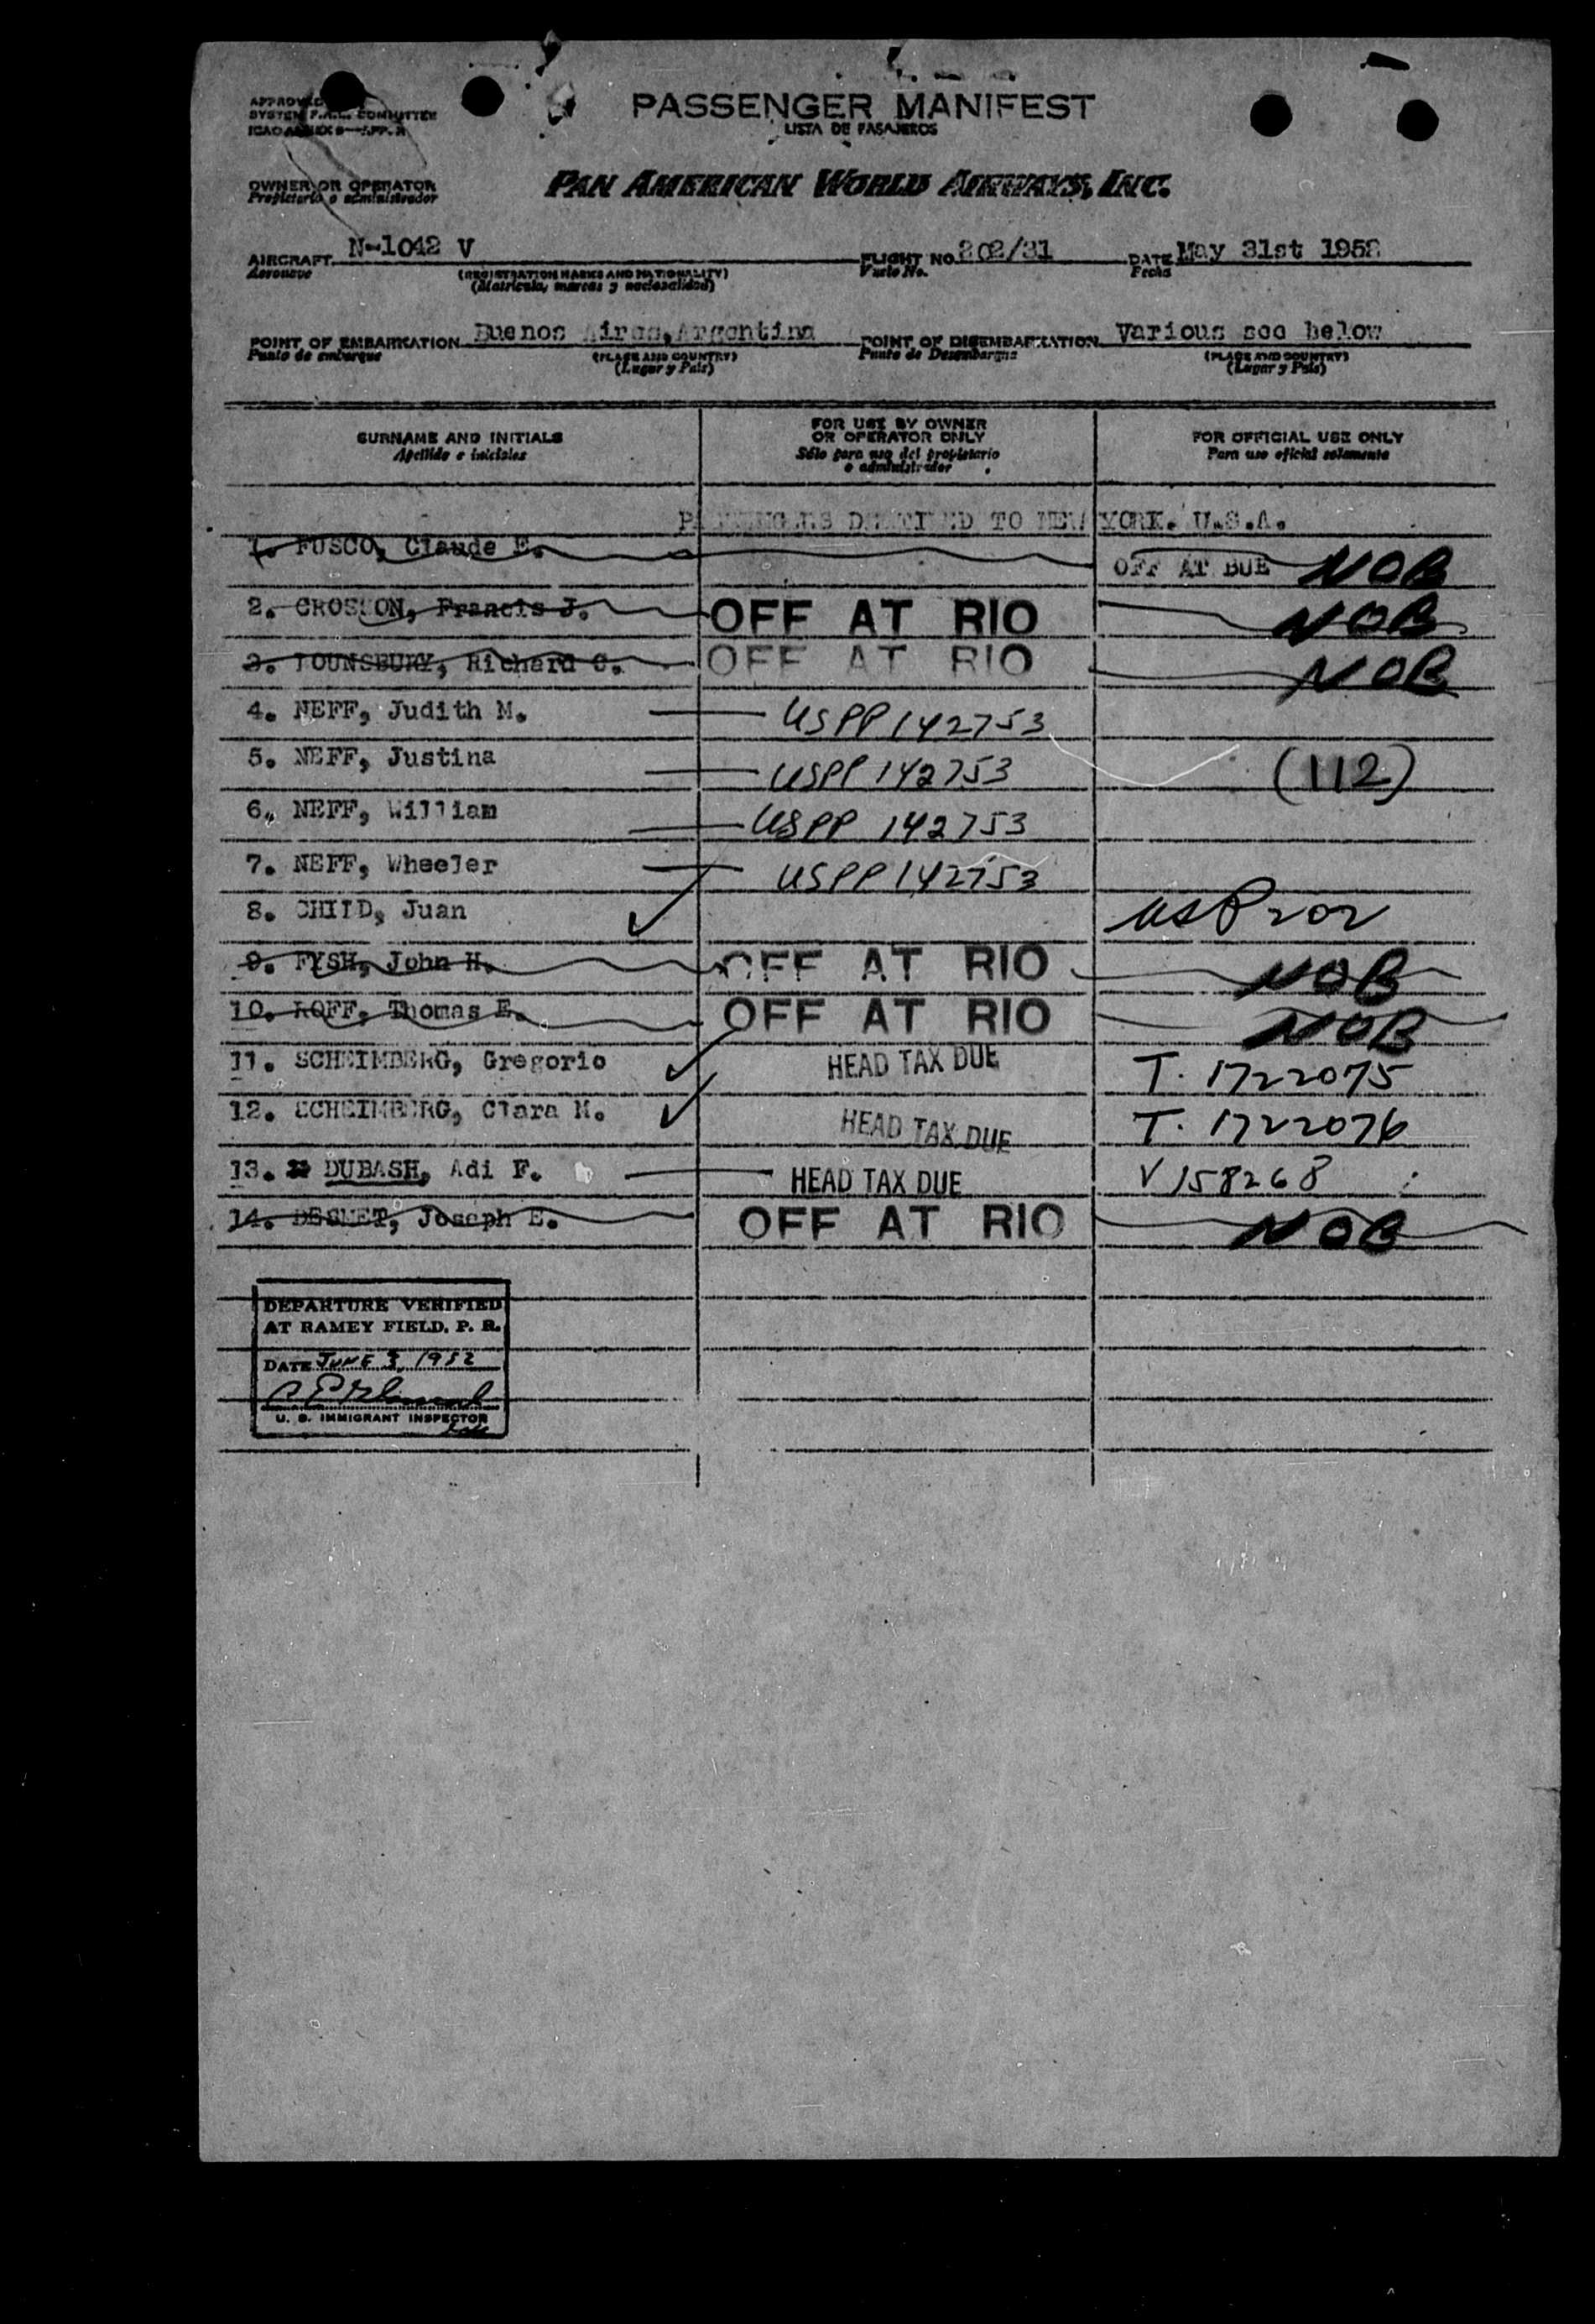 PASSENGER MANIFEST
LISTA DE PASAJEROS
APPROVED
SYSTEM F.A.L. COMMITTEE
ICAO ANNEX 9—APP. R
OWNER OR OPERATOR
Propietario o administrador
PAN AMERICAN WORLD AIRWAYS, INC.
AIRCRAFT N-1042 V FLIGHT NO. 202/31 DATE May 31st 1952
Aeronave (REGISTRATION MARKS AND NATIONALITY) Vuelo No. Fecha
(Matricula, marcas y nacionalidad)
POINT OF EMBARKATION Buenos Aires, Argentina POINT OF DISEMBARKATION Various see below
Punto de embarque (PLACE AND COUNTRY) Punto de Desembarque (PLACE AND COUNTRY)
(Lugar y País) (Lugar y País)
SURNAME AND INITIALS
Apellido e iniciales
FOR USE BY OWNER
OR OPERATOR ONLY
Sólo para uso del propietario
o administrador
FOR OFFICIAL USE ONLY
Para uso oficial solamente
PASSENGERS DESTINED TO NEW YORK. U.S.A.
1. FUSCO, Claude E. OFF AT BUE NOB
2. CROSSON, Francis J. OFF AT RIO NOB
3. LOUNSBURY, Richard C. OFF AT RIO NOB
4. NEFF, Judith M. USPP 142753
5. NEFF, Justina USPP 142753 (112)
6. NEFF, William USPP 142753
7. NEFF, Wheeler USPP 142753
8. CHILD, Juan
9. FYSH, John H. OFF AT RIO NOB
10. ROFF, Thomas E. OFF AT RIO NOB
11. SCHEIMBERG, Gregorio HEAD TAX DUE T. 1722075
12. SCHEIMBERG, Clara M. HEAD TAX DUE T. 1722076
13. DUBASH, Adi F. HEAD TAX DUE V 158268
14. DESMET, Joseph E. OFF AT RIO NOB
DEPARTURE VERIFIED
AT RAMEY FIELD, P. R.
DATE JUNE 3, 1952
U. S. IMMIGRANT INSPECTOR